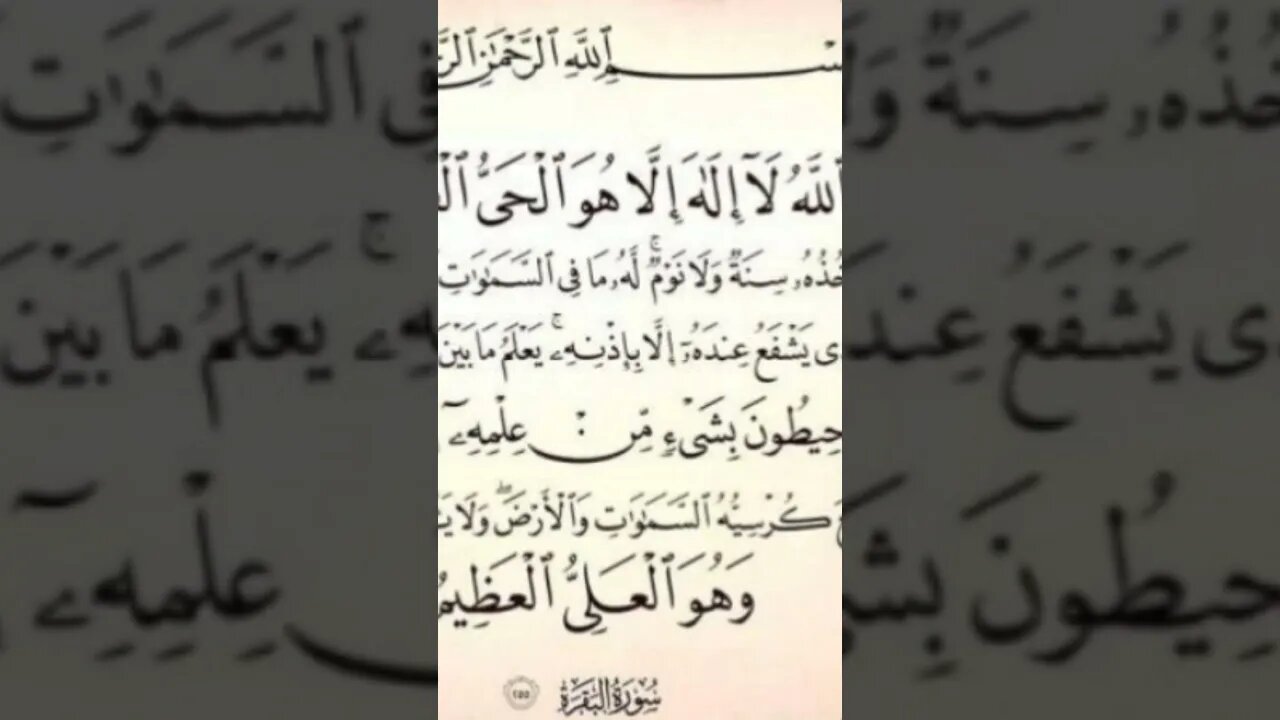 سْمِ ٱللَّهِ ٱلرَّحْمَٰنِ ٱلرَّ
ٱللَّهُ لَآ إِلَٰهَ إِلَّا هُوَ ٱلْحَىُّ ٱلْ
خُذُهُۥ سِنَةٌ وَلَا نَوْمٌ ۚ لَّهُۥ مَا فِى ٱلسَّمَٰوَٰتِ
ى يَشْفَعُ عِندَهُۥٓ إِلَّا بِإِذْنِهِۦ ۚ يَعْلَمُ مَا بَيْنَ
حِيطُونَ بِشَىْءٍ مِّنْ عِلْمِهِۦٓ
كُرْسِيُّهُ ٱلسَّمَٰوَٰتِ وَٱلْأَرْضَ ۖ وَلَا يَـ
وَهُوَ ٱلْعَلِىُّ ٱلْعَظِيمُ
سُورَةُ البَقَرَة ٢٥٥